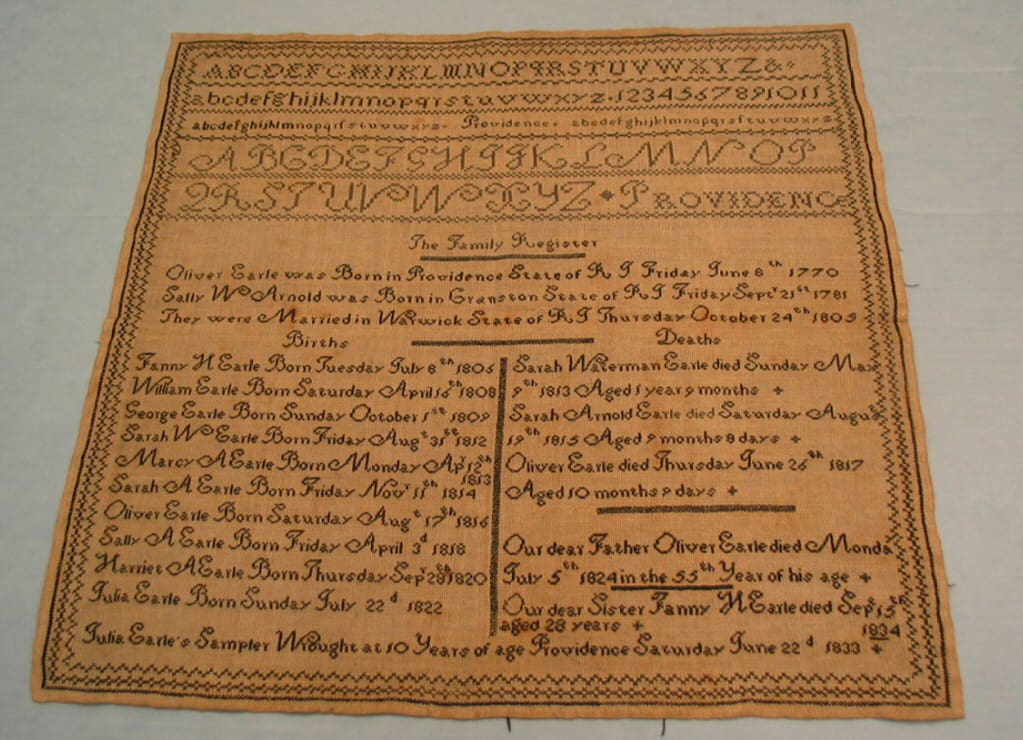 ABCDEFGHIJKLMNOPQRSTUVWXYZ&
abcdefghijklmnopqrstuvwxyz.1234567891011
abcdefghijklmnopqrſstuvwxyz. Providence. abcdefghijklmnopqrſstuvwxyz
ABCDEFGHIJKLMNOP
QRSTUVWXYZ PROVIDENC
The Family Register
Oliver Earle was Born in Providence State of R I Friday June 8th 1770
Sally W Arnold was Born in Cranston State of R I Friday Septr 21st 1781
They were Married in Warwick State of R I Thursday October 24th 1805
Births
Fanny H Earle Born Tuesday July 8th 1806
William Earle Born Saturday April 16th 1808
George Earle Born Sunday October 1st 1809
Sarah W Earle Born Friday Augt 31st 1812
Marcy A Earle Born Monday Apr 12th 1813
Sarah A Earle Born Friday Novr 11th 1814
Oliver Earle Born Saturday Augt 17th 1816
Sally A Earle Born Friday April 3d 1818
Harriet A Earle Born Thursday Sepr 28th 1820
Julia Earle Born Sunday July 22d 1822
Deaths
Sarah Waterman Earle died Sunday May
9th 1813 Aged 1 year 9 months +
Sarah Arnold Earle died Saturday August
19th 1815 Aged 9 months 8 days +
Oliver Earle died Thursday June 26th 1817
Aged 10 months 9 days +
Our dear Father Oliver Earle died Monda
July 5th 1824 in the 55th Year of his age +
Our dear Sister Fanny H Earle died Sept 15th
aged 28 years + 1834
Julia Earle's Sampler Wrought at 10 Years of age Providence Saturday June 22d 1833 +